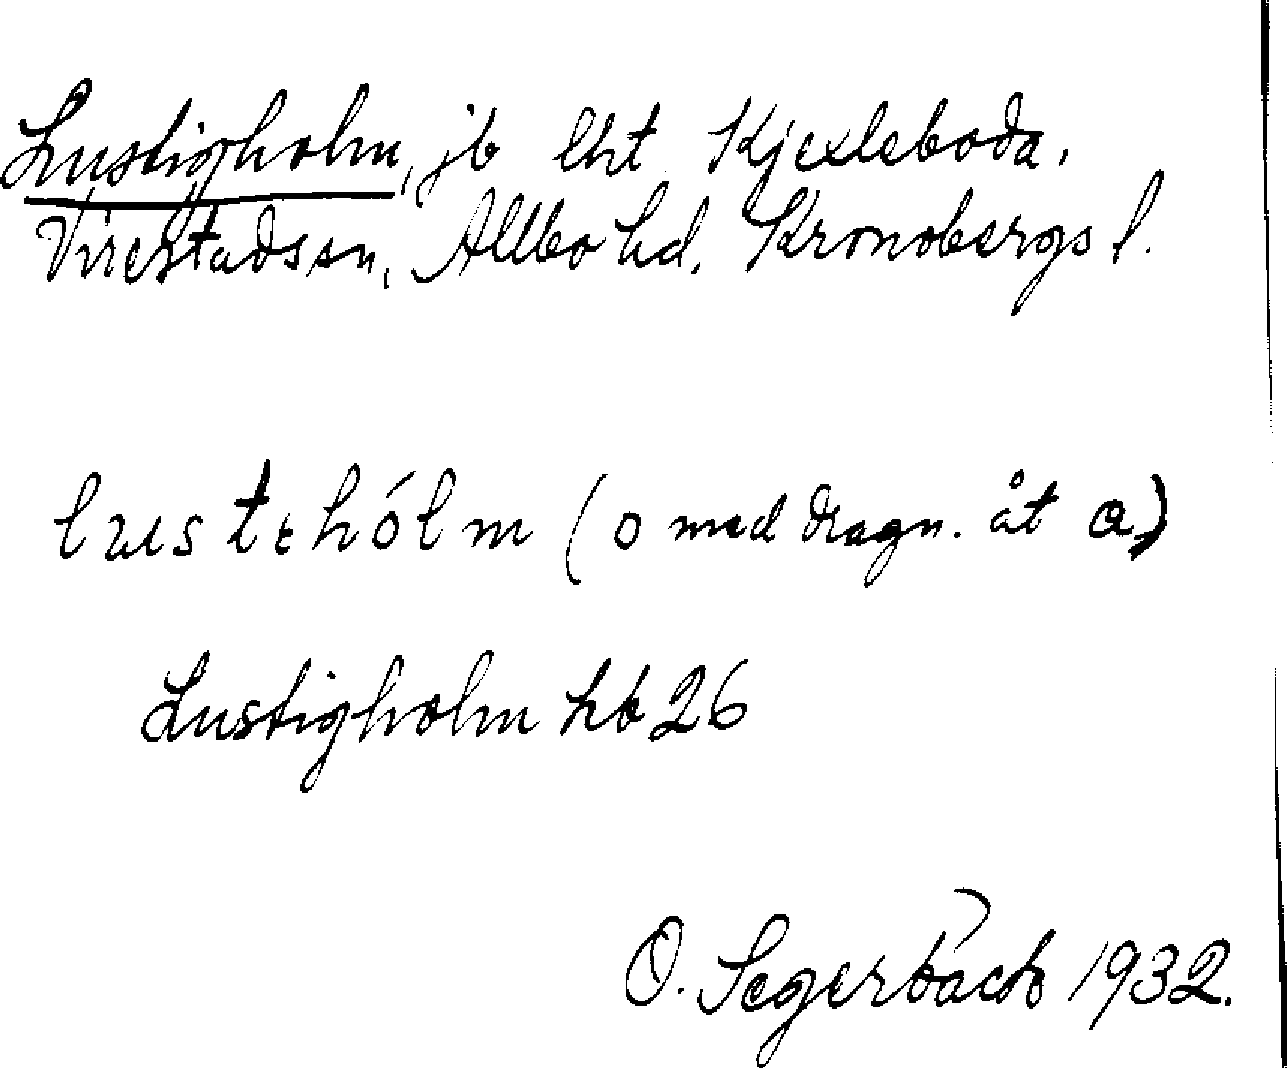 Lustigholm, jb lht Kjexleboda,
Virestads sn, Allbo hd, Kronobergs l.
lustɛhólm (o med dragn. åt a)
Lustigholm hb 26
O. Segerbäck 1932.